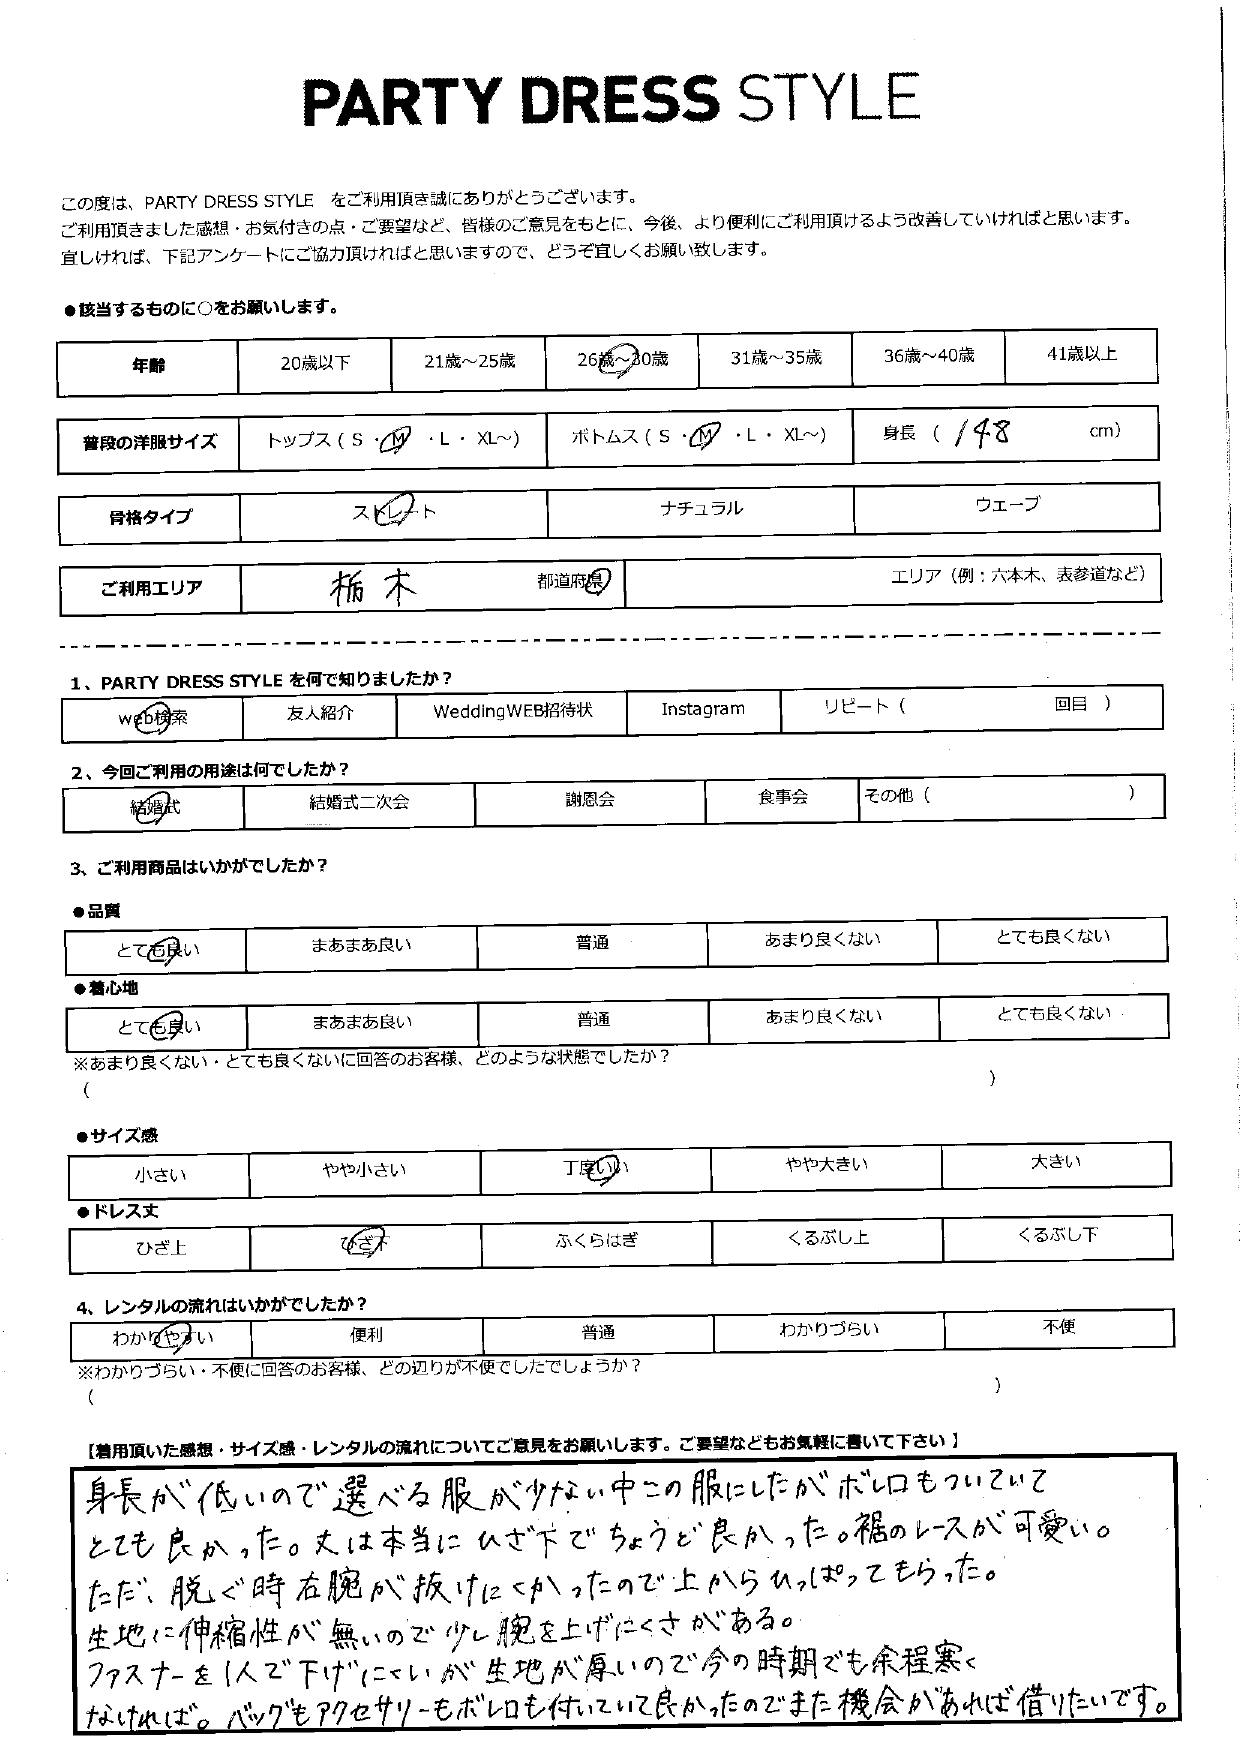 PARTY DRESS STYLE
この度は、PARTY DRESS STYLE をご利用頂き誠にありがとうございます。
ご利用頂きました感想・お気付きの点・ご要望など、皆様のご意見をもとに、今後、より便利にご利用頂けるよう改善していければと思います。
宜しければ、下記アンケートにご協力頂ければと思いますので、どうぞ宜しくお願い致します。
●該当するものに○をお願いします。
年齢 20歳以下 21歳～25歳 26歳～30歳 31歳～35歳 36歳～40歳 41歳以上
普段の洋服サイズ トップス ( S ・ M ・ L ・ XL～) ボトムス ( S ・ M ・ L ・ XL～) 身長 ( 148 cm)
骨格タイプ ストレート ナチュラル ウェーブ
ご利用エリア 栃木 都道府県 エリア（例：六本木、表参道など）
1、PARTY DRESS STYLE を何で知りましたか？
web検索 友人紹介 WeddingWEB招待状 Instagram リピート ( 回目 )
2、今回ご利用の用途は何でしたか？
結婚式 結婚式二次会 謝恩会 食事会 その他 ( )
3、ご利用商品はいかがでしたか？
●品質
とても良い まあまあ良い 普通 あまり良くない とても良くない
●着心地
とても良い まあまあ良い 普通 あまり良くない とても良くない
※あまり良くない・とても良くないに回答のお客様、どのような状態でしたか？
( )
●サイズ感
小さい やや小さい 丁度いい やや大きい 大きい
●ドレス丈
ひざ上 ひざ下 ふくらはぎ くるぶし上 くるぶし下
4、レンタルの流れはいかがでしたか？
わかりやすい 便利 普通 わかりづらい 不便
※わかりづらい・不便に回答のお客様、どの辺りが不便でしたでしょうか？
( )
【着用頂いた感想・サイズ感・レンタルの流れについてご意見をお願いします。ご要望などもお気軽に書いて下さい】
身長が低いので選べる服が少ない中この服にしたがボレロもついていて
とても良かった。丈は本当にひざ下でちょうど良かった。裾のレースが可愛い。
ただ、脱ぐ時右腕が抜けにくかったので上からひっぱってもらった。
生地に伸縮性が無いので少し腕を上げにくさがある。
ファスナーを1人で下げにくいが生地が厚いので今の時期でも余程寒く
なければ。バッグもアクセサリーもボレロも付いていて良かったのでまた機会があれば借りたいです。